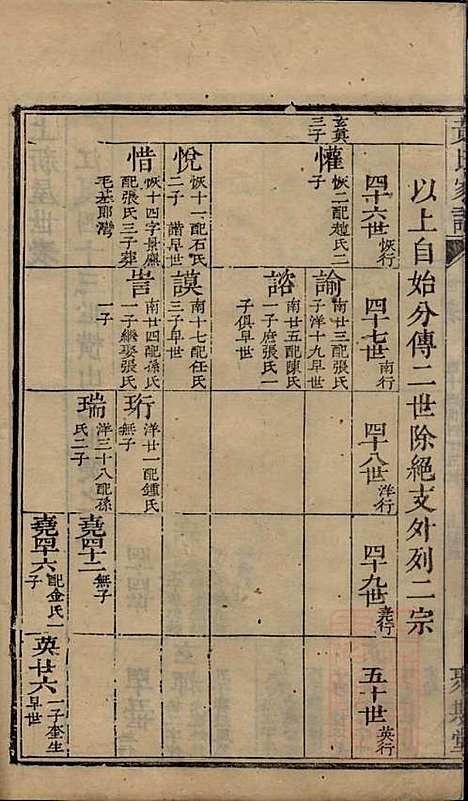 黃氏家譜
聚斯堂
以上自始分傳二世除絕支外列二宗
四十六世 恢行
四十七世 南行
四十八世 洋行
四十九世 堯行
五十世 英行
玄真
三子
懽 恢二配趙氏二
子
諭 南廿三配張氏一
子洋十九早世
諮 南廿五配陳氏
一子庶張氏一
子俱早世
悅 恢十一配石氏
二子 諧早世
謨 南十七配任氏
三子早世
惜 恢十四字景應
配張氏三子葬
毛基郎灣
訔 南廿四配孫氏
一子繼娶張氏
一子
珩 洋廿一配鍾氏
無子
瑞 洋三十八配孫
氏二子
堯四十二 無子
堯四十六 配金氏一
子
英廿六 一子奎生
早世